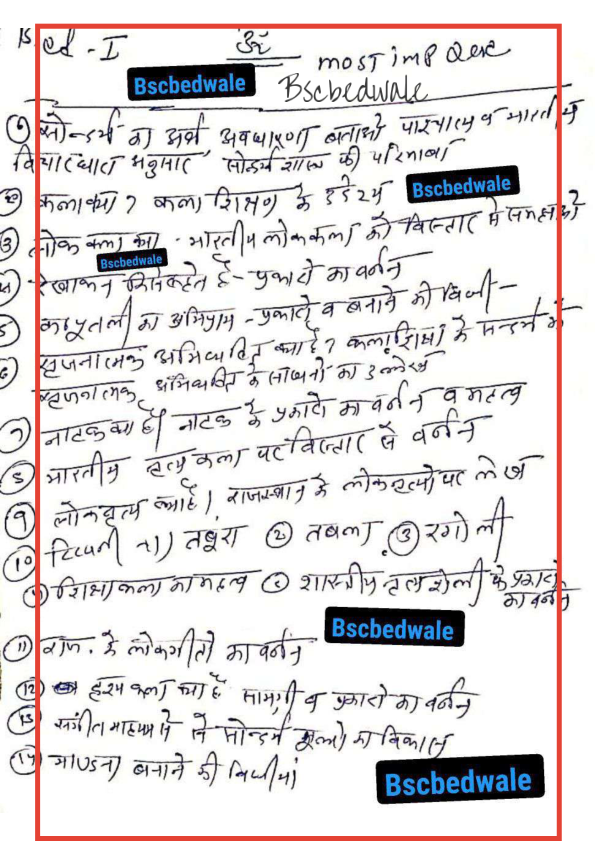 B.ed - I ॐ most imp Que
Bscbedwale Bscbedwale
① सौन्दर्य का अर्थ अवधारणा बताओ पाश्चात्य व भारतीय
विचारधारा अनुसार सौन्दर्य शास्त्र की परिभाषा
② कला क्या? कला शिक्षण के उद्देश्य Bscbedwale
③ लोक कला क्या - भारतीय लोककला को विस्तार से समझाओ
Bscbedwale
④ रेखाकन किसे कहते है - प्रकारो का वर्णन
5 कठपुतली का अभिप्राय - प्रकारो व बनाने की विधी -
⑥ सृजनात्मक अभिव्यक्ति क्या है? कला शिक्षा के सन्दर्भ में
सृजनात्मक अभिव्यक्ति के साधनो का उल्लेख
⑦ नाटक क्या है। नाटक के प्रकारो का वर्णन व महत्व
⑧ भारतीय नृत्य कला पर विस्तार से वर्णन
⑨ लोकनृत्य क्या है। राजस्थान के लोकनृत्यो पर लेख
⑩ टिप्पणी 1) तबूरा ② तबला ③ रंगोली
④ शिक्षा कला का महत्व ⑤ शास्त्रीय नृत्य शैली के प्रकारो
का वर्णन
Bscbedwale
⑪ राज. के लोकगीतो का वर्णन
⑫ दृश्य कला क्या है सामग्री व प्रकारो का वर्णन
⑬ संगीत माध्यम से सौन्दर्य मूल्यो का विकास
⑭ माण्डना बनाने की विधीयां
Bscbedwale